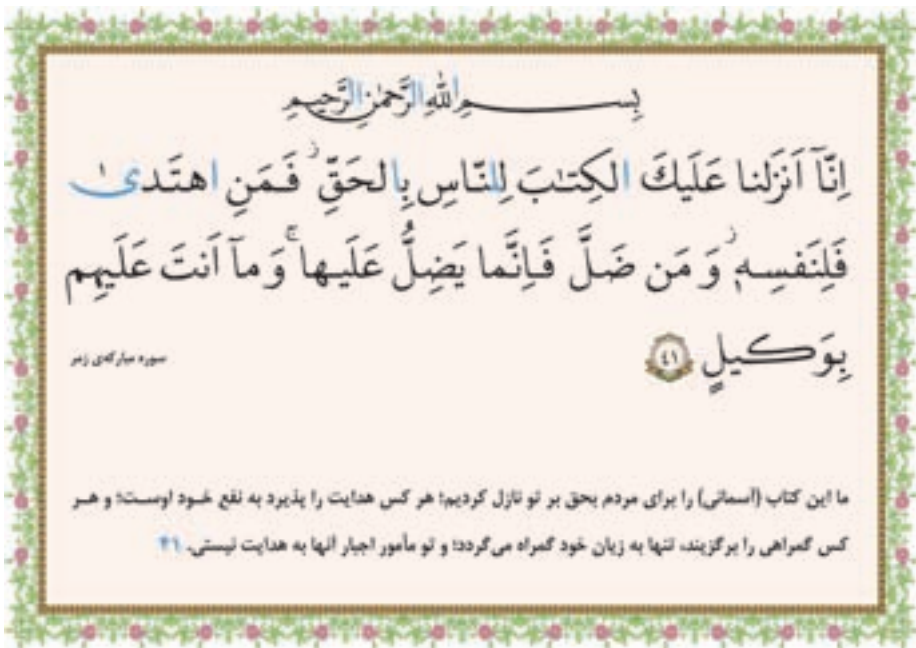 بِسمِ اللهِ الرَّحمٰنِ الرَّحیمِ
اِنّآ اَنزَلنا عَلَیكَ الکِتٰبَ لِلنّاسِ بِالحَقِّ ۖ فَمَنِ اهتَدیٰ
فَلِنَفسِهٖ ۖ وَ مَن ضَلَّ فَاِنَّما یَضِلُّ عَلَیها ۚ وَ مآ اَنتَ عَلَیهِم
بِوَکیلٍ ٤١
سوره مبارکه‌ی زمر
ما این کتاب (آسمانی) را برای مردم بحق بر تو نازل کردیم؛ هر کس هدایت را پذیرد به نفع خـود اوسـت؛ و هـر
کس گمراهی را برگزیند، تنها به زیان خود گمراه می‌گردد؛ و تو مأمور اجبار آنها به هدایت نیستی. ۴۱